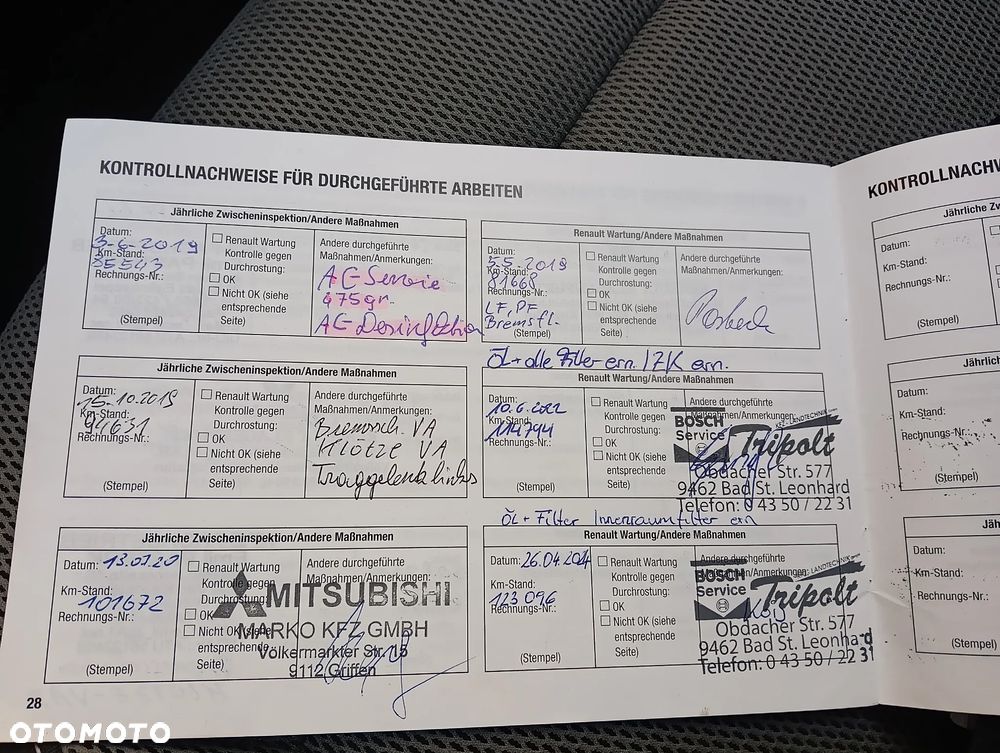 KONTROLLNACHWEISE FÜR DURCHGEFÜHRTE ARBEITEN
Jährliche Zwischeninspektion/Andere Maßnahmen
Datum:
3-6-2019
Km-Stand:
Rechnungs-Nr.:
(Stempel)
Renault Wartung
Kontrolle gegen
Durchrostung:
OK
Nicht OK (siehe
entsprechende
Seite)
Andere durchgeführte
Maßnahmen/Anmerkungen:
AC-Service
475gr.
AC Desinfektion
Renault Wartung/Andere Maßnahmen
Datum:
Km-Stand:
81668
Rechnungs-Nr.:
LF, PF
Bremsfl.
(Stempel)
Renault Wartung
Kontrolle gegen
Durchrostung:
OK
Nicht OK (siehe
entsprechende
Seite)
Andere durchgeführte
Maßnahmen/Anmerkungen:
Jährliche Zwischeninspektion/Andere Maßnahmen
Datum:
15.10.2019
Km-Stand:
94631
Rechnungs-Nr.:
(Stempel)
Renault Wartung
Kontrolle gegen
Durchrostung:
OK
Nicht OK (siehe
entsprechende
Seite)
Andere durchgeführte
Maßnahmen/Anmerkungen:
Bremssch. VA
Klötze VA
Traggelenk links
ÖL + alle Filter ern. / ZK ern.
Renault Wartung/Andere Maßnahmen
Datum:
10.6.2022
Km-Stand:
114794
Rechnungs-Nr.:
(Stempel)
Renault Wartung
Kontrolle gegen
Durchrostung:
OK
Nicht OK (siehe
entsprechende
Seite)
Andere durchgeführte
Maßnahmen/Anmerkungen:
BOSCH
Service
KFZ- LANDTECHNIK
Tripolt
Obdacher Str. 577
9462 Bad St. Leonhard
Telefon: 0 43 50 / 22 31
Jährliche Zwischeninspektion/Andere Maßnahmen
Datum: 13.07.20
Km-Stand:
101672
Rechnungs-Nr.:
(Stempel)
Renault Wartung
Kontrolle gegen
Durchrostung:
OK
Nicht OK (siehe
entsprechende
Seite)
Andere durchgeführte
Maßnahmen/Anmerkungen:
MITSUBISHI
MARKO KFZ GMBH
Völkermarkter Str. 15
9112 Griffen
ÖL + Filter Innenraumfilter ern
Renault Wartung/Andere Maßnahmen
Datum: 26.04.2024
Km-Stand:
123 096
Rechnungs-Nr.:
(Stempel)
Renault Wartung
Kontrolle gegen
Durchrostung:
OK
Nicht OK (siehe
entsprechende
Seite)
Andere durchgeführte
Maßnahmen/Anmerkungen:
BOSCH
Service
KFZ- LANDTECHNIK
Tripolt
Obdacher Str. 577
9462 Bad St. Leonhard
Telefon: 0 43 50 / 22 31
28
KONTROLLNACHW
Jährliche Zw
Datum:
Km-Stand:
Rechnungs-Nr.:
(Stempel)
Jährl
Datum:
Km-Stand:
Rechnungs-Nr.:
(Stempel)
Jäh
Datum:
Km-Stand:
Rechnungs-Nr.:
(Stempel)
OTOMOTO